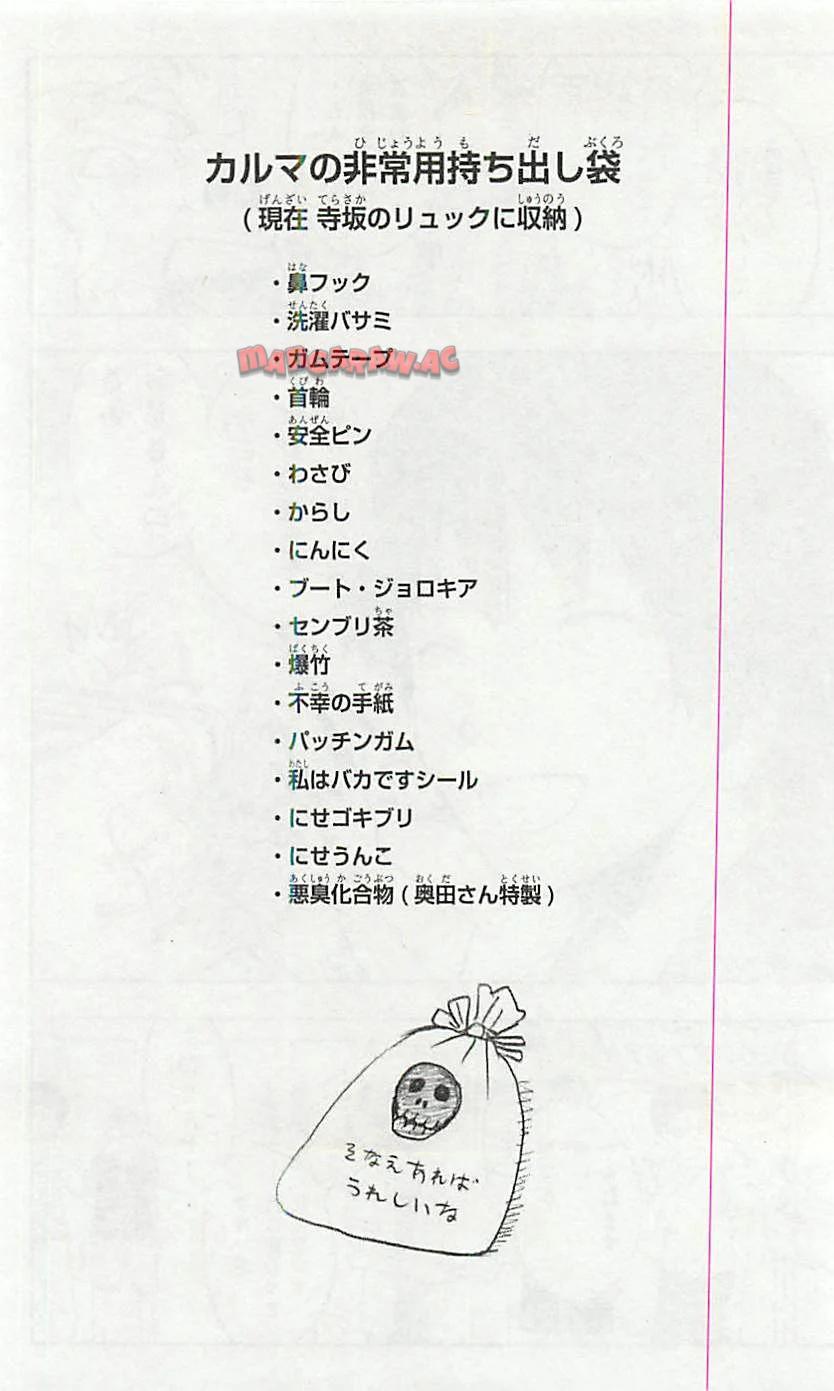 カルマの非常用持ち出し袋
(現在 寺坂のリュックに収納)
・鼻フック
・洗濯バサミ
・ガムテープ
MANGARAW.AC
・首輪
・安全ピン
・わさび
・からし
・にんにく
・ブート・ジョロキア
・センブリ茶
・爆竹
・不幸の手紙
・パッチンガム
・私はバカですシール
・にせゴキブリ
・にせうんこ
・悪臭化合物(奥田さん特製)
そなえあれば
うれしいな